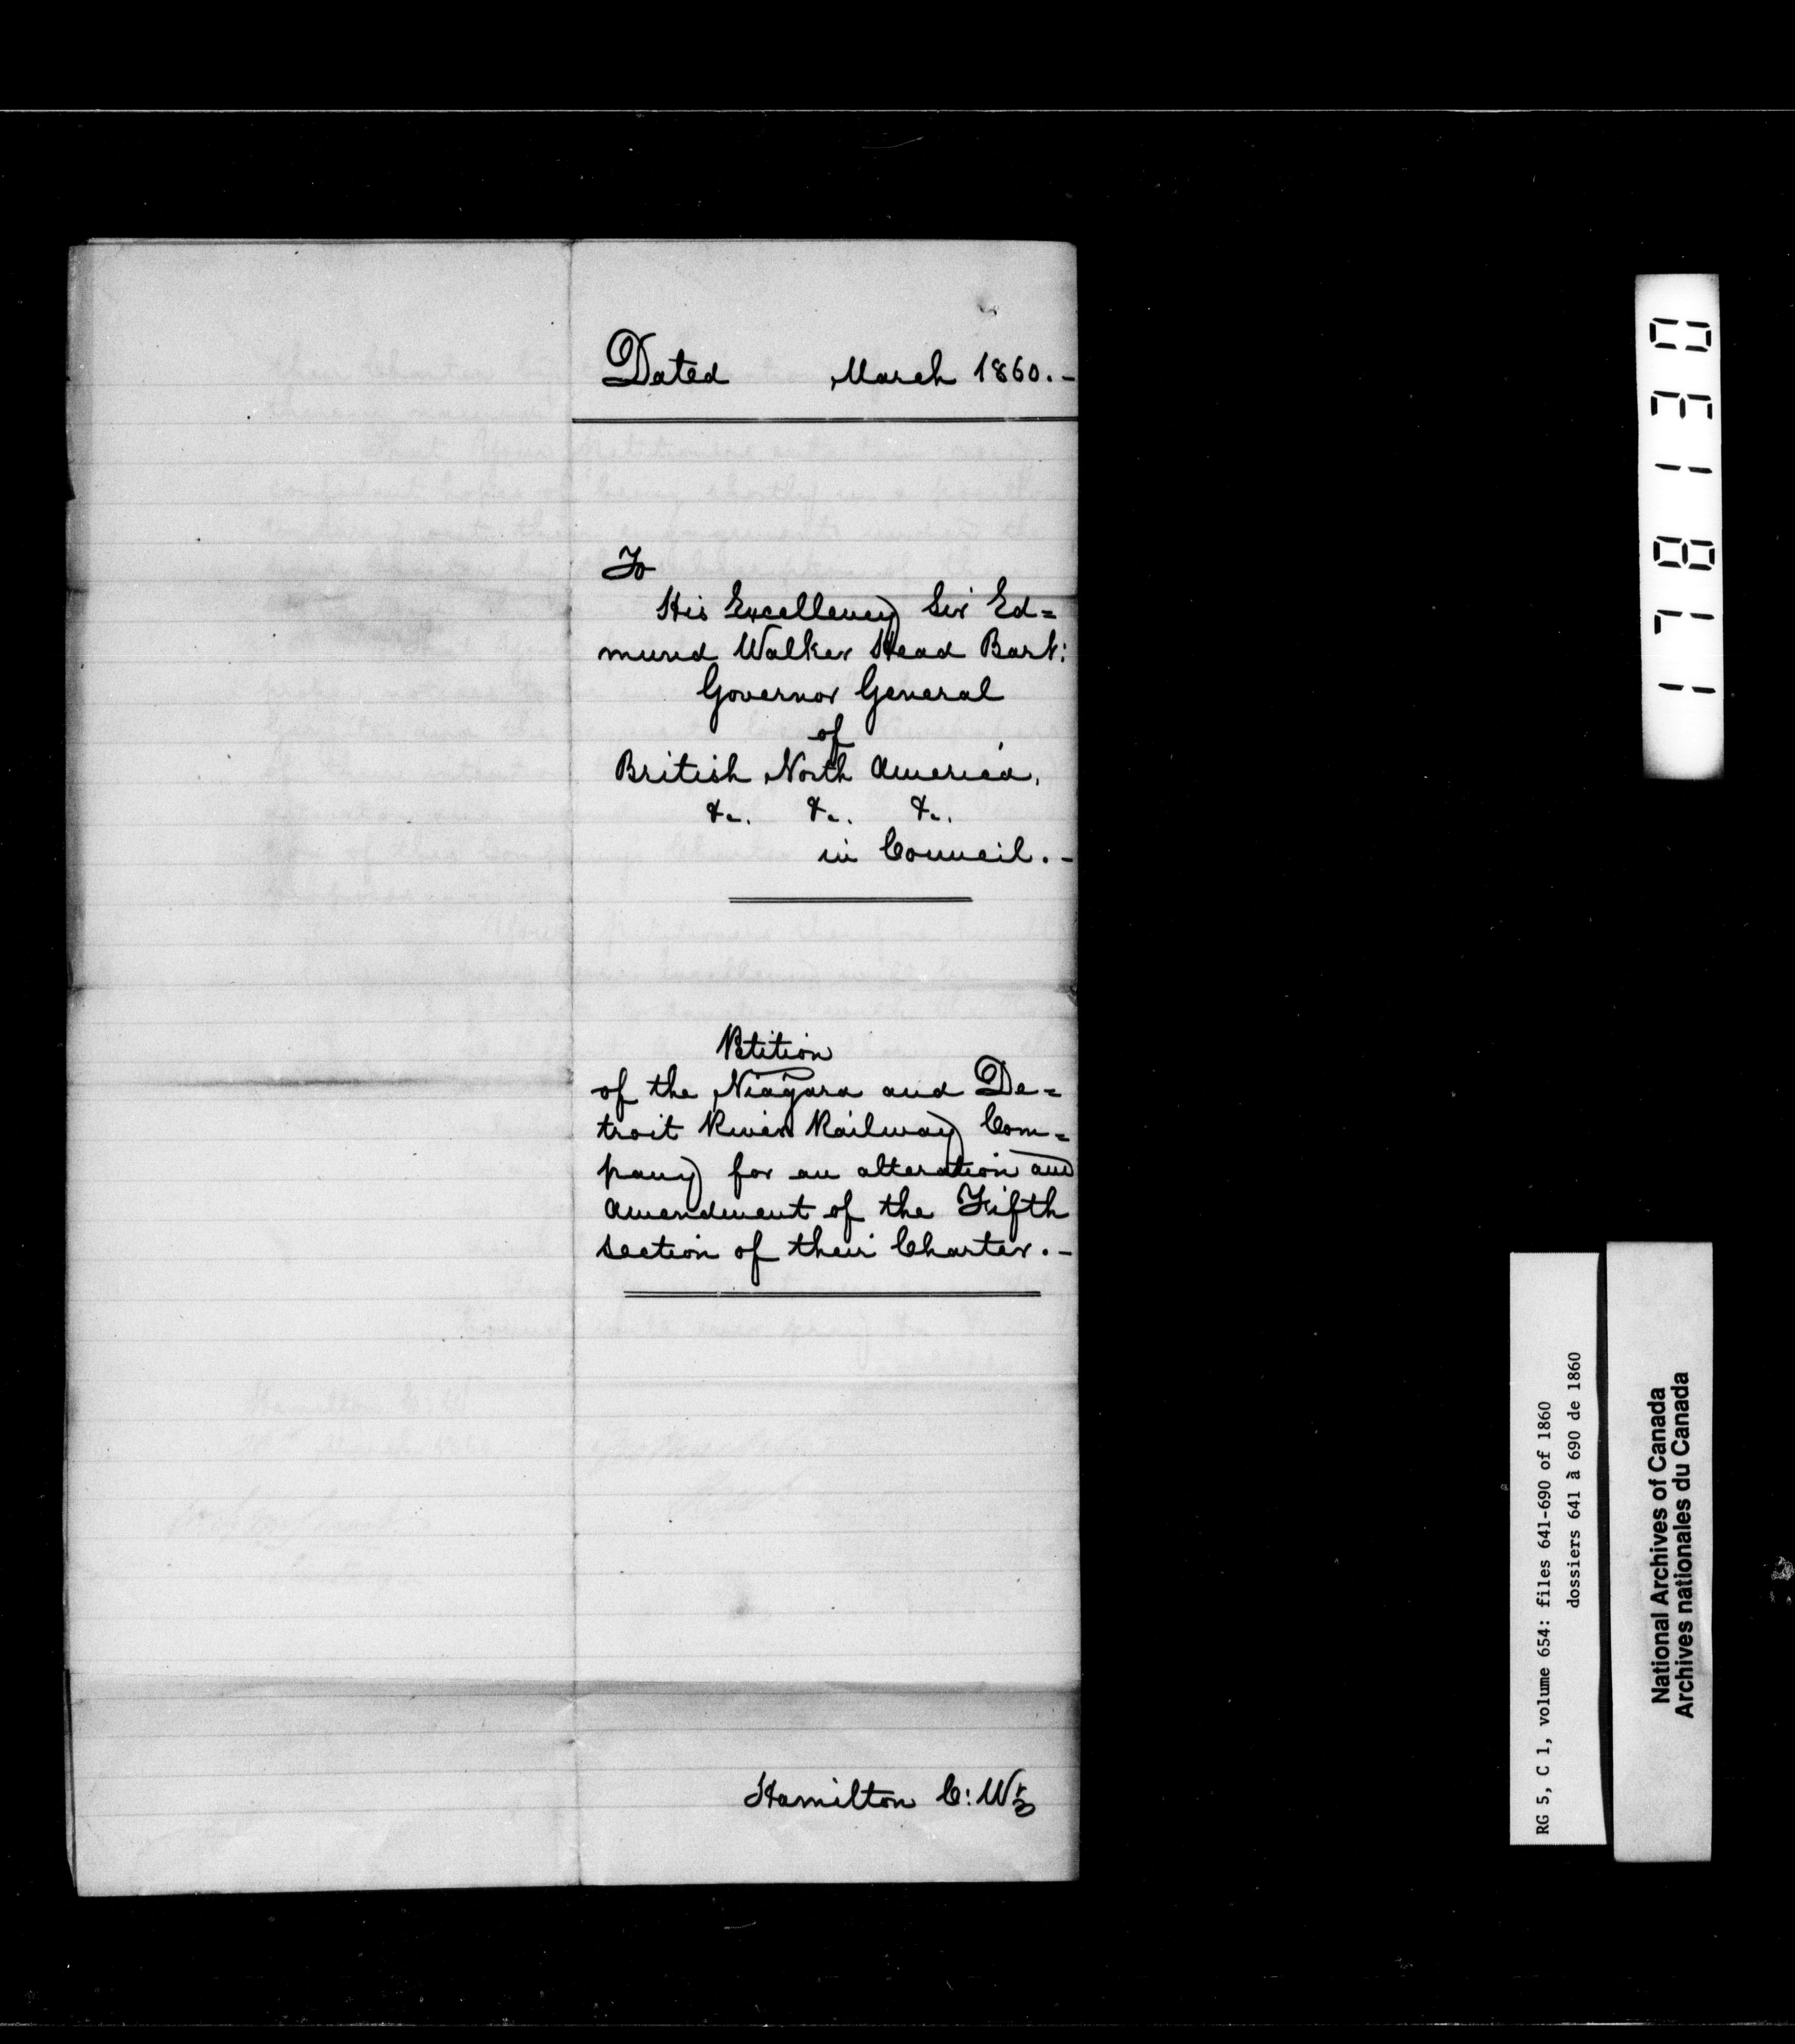 Dated March 1860.-
To
His Excellency Sir Ed=
mund Walker Head Bart:
Governor General
of
British North America,
&c. &c. &c.
in Council.-
Petition
of the Niagara and De=
troit River Railway Com=
pany for an alteration and
amendment of the Fifth
section of their Charter.-
Hamilton C: W
178130
RG 5, C 1, volume 654: files 641-690 of 1860
dossiers 641 à 690 de 1860
National Archives of Canada
Archives nationales du Canada